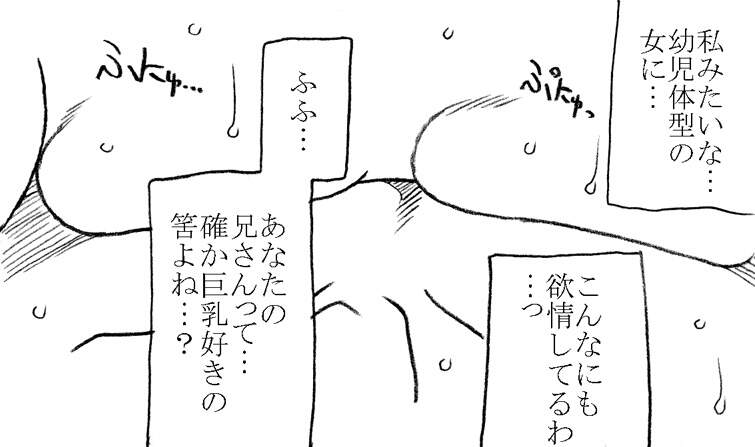 私みたいな…
幼児体型の
女に…
ぷにゅっ
こんなにも
欲情してるわ
…っ
ふふ…
あなたの
兄さんって…
確か巨乳好きの
筈よね…？
ふにゅ…